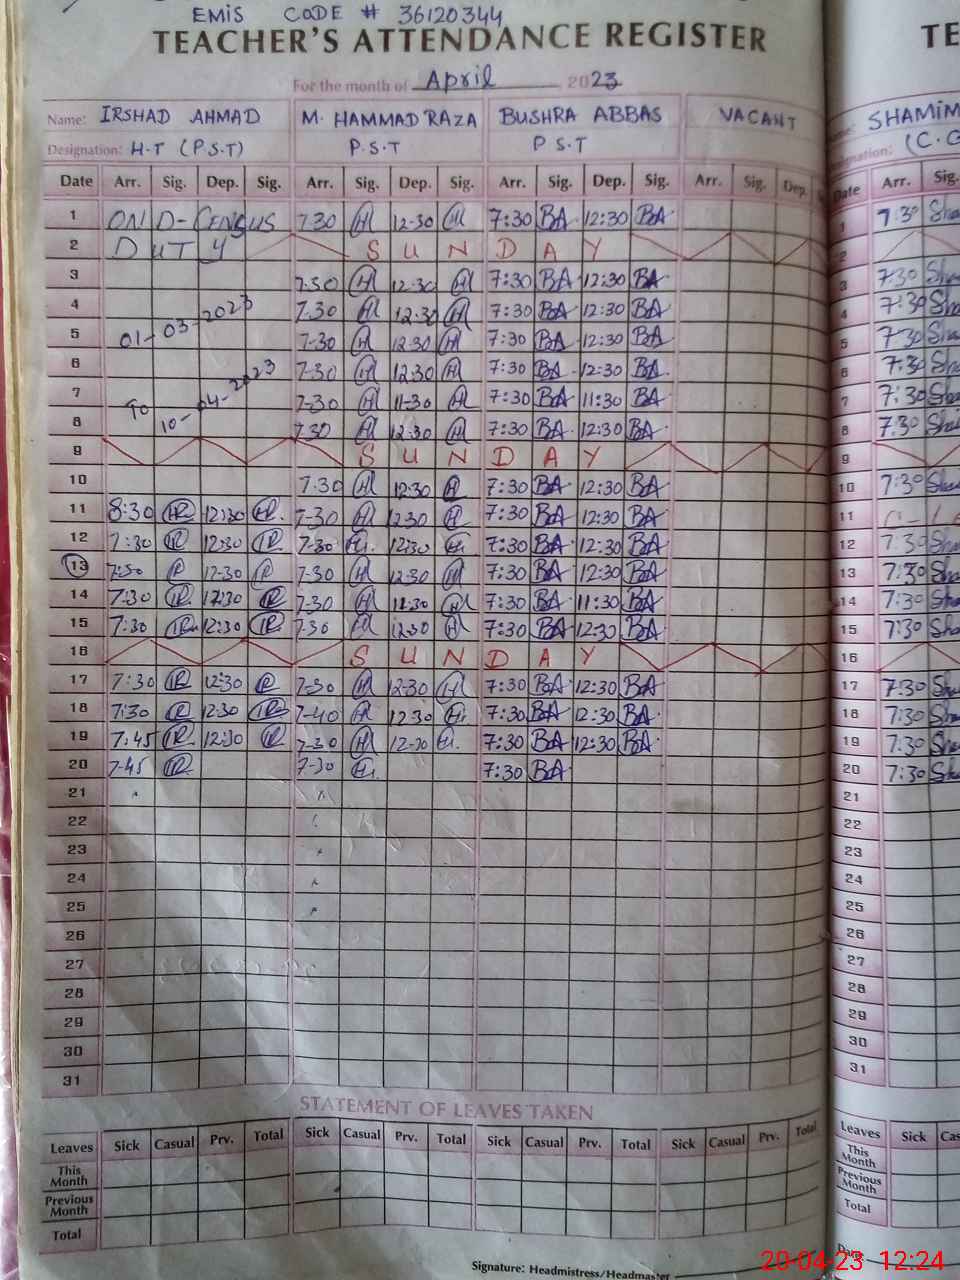 EMIS CODE # 36120344
TEACHER'S ATTENDANCE REGISTER TE
For the month of April 2023
Name: IRSHAD AHMAD M. HAMMAD RAZA BUSHRA ABBAS VACANT SHAMIM
Designation: H.T (P.S.T) P.S.T P S.T (C.G
Date Arr. Sig. Dep. Sig. Arr. Sig. Dep. Sig. Arr. Sig. Dep. Sig. Arr. Sig. Dep. Date Arr. Sig.
1 ON D-CENSUS 7.30 H 12-30 H 7:30 BA 12:30 BA 1 7:30 Sha
2 DUTY SUNDAY 2
3 7.30 H 12-30 H 7:30 BA 12:30 BA 3 7:30 Sha
4 7.30 H 12.30 H 7:30 BA 12:30 BA 4 7:30 Sha
5 01-03-2023 7-30 H 12.30 H 7:30 BA 12:30 BA 5 7:30 Sha
6 7-30 H 12.30 H 7:30 BA 12:30 BA 6 7:30 Sha
7 To 7-30 H 11-30 H 7:30 BA 11:30 BA 7 7:30 Sha
8 10-04-2023 7.30 H 12.30 H 7:30 BA 12:30 BA 8 7:30 Sha
9 SUNDAY 9
10 7.30 H 12.30 H 7:30 BA 12:30 BA 10 7:30 Sha
11 8:30 12:30 7-30 H 12.30 H 7:30 BA 12:30 BA 11
12 7:30 12:30 7-30 H 12:30 H 7:30 BA 12:30 BA 12 7:30 Sha
13 7:50 12-30 7-30 H 12.30 H 7:30 BA 12:30 BA 13 7:30 Sha
14 7:30 7-30 H 11.30 H 7:30 BA 11:30 BA 14 7:30 Sha
15 7:30 12:30 7-30 H 12.30 H 7:30 BA 12:30 BA 15 7:30 Sha
16 SUNDAY 16
17 7:30 12:30 7-30 H 12.30 H 7:30 BA 12:30 BA 17 7:30 Sha
18 7:30 12:30 7-40 H 12.30 H 7:30 BA 12:30 BA 18 7:30 Sha
19 7:45 12:30 7-30 H 12-30 H 7:30 BA 12:30 BA 19 7:30 Sha
20 7-45 7-30 H 7:30 BA 20 7:30 Sha
21 21
22 22
23 23
24 24
25 25
26 26
27 27
28 28
29 29
30 30
31 31
STATEMENT OF LEAVES TAKEN
Leaves Sick Casual Prv. Total Sick Casual Prv. Total Sick Casual Prv. Total Sick Casual Prv. Total Leaves Sick Cas
This Month This Month
Previous Month Previous Month
Total Total
Signature: Headmistress/Headmaster
20-04-23 12:24